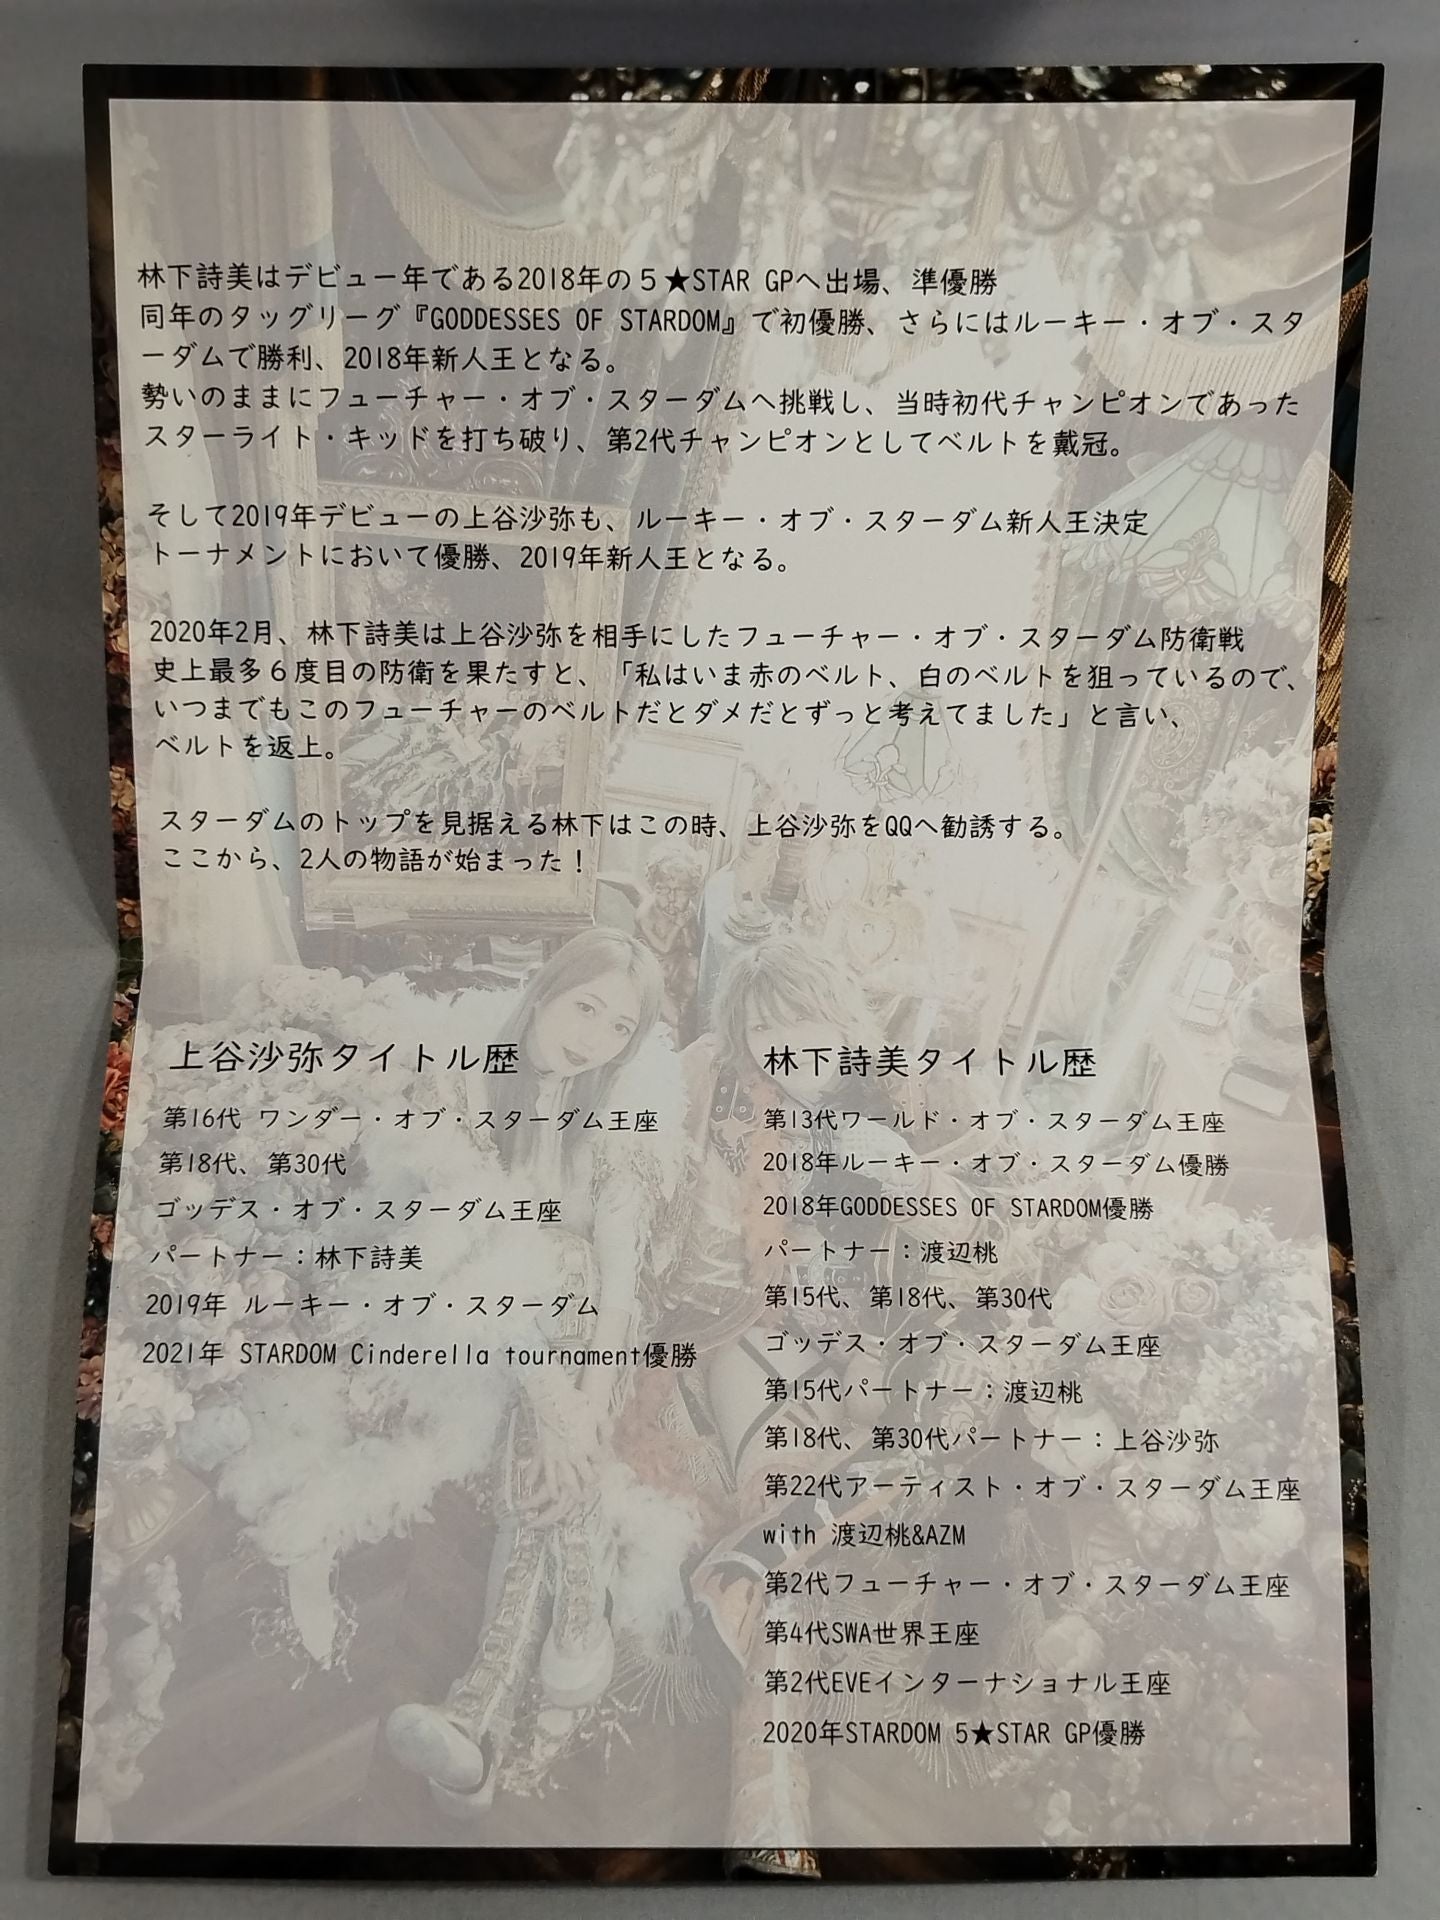 林下詩美はデビュー年である2018年の５★STAR GPへ出場、準優勝
同年のタッグリーグ『GODDESSES OF STARDOM』で初優勝、さらにはルーキー・オブ・スタ
ーダムで勝利、2018年新人王となる。
勢いのままにフューチャー・オブ・スターダムへ挑戦し、当時初代チャンピオンであった
スターライト・キッドを打ち破り、第2代チャンピオンとしてベルトを戴冠。
そして2019年デビューの上谷沙弥も、ルーキー・オブ・スターダム新人王決定
トーナメントにおいて優勝、2019年新人王となる。
2020年2月、林下詩美は上谷沙弥を相手にしたフューチャー・オブ・スターダム防衛戦
史上最多６度目の防衛を果たすと、「私はいま赤のベルト、白のベルトを狙っているので、
いつまでもこのフューチャーのベルトだとダメだとずっと考えてました」と言い、
ベルトを返上。
スターダムのトップを見据える林下はこの時、上谷沙弥をQQへ勧誘する。
ここから、2人の物語が始まった！
上谷沙弥タイトル歴
第16代 ワンダー・オブ・スターダム王座
第18代、第30代
ゴッデス・オブ・スターダム王座
パートナー：林下詩美
2019年 ルーキー・オブ・スターダム
2021年 STARDOM Cinderella tournament優勝
林下詩美タイトル歴
第13代ワールド・オブ・スターダム王座
2018年ルーキー・オブ・スターダム優勝
2018年GODDESSES OF STARDOM優勝
パートナー：渡辺桃
第15代、第18代、第30代
ゴッデス・オブ・スターダム王座
第15代パートナー：渡辺桃
第18代、第30代パートナー：上谷沙弥
第22代アーティスト・オブ・スターダム王座
with 渡辺桃&AZM
第2代フューチャー・オブ・スターダム王座
第4代SWA世界王座
第2代EVEインターナショナル王座
2020年STARDOM 5★STAR GP優勝